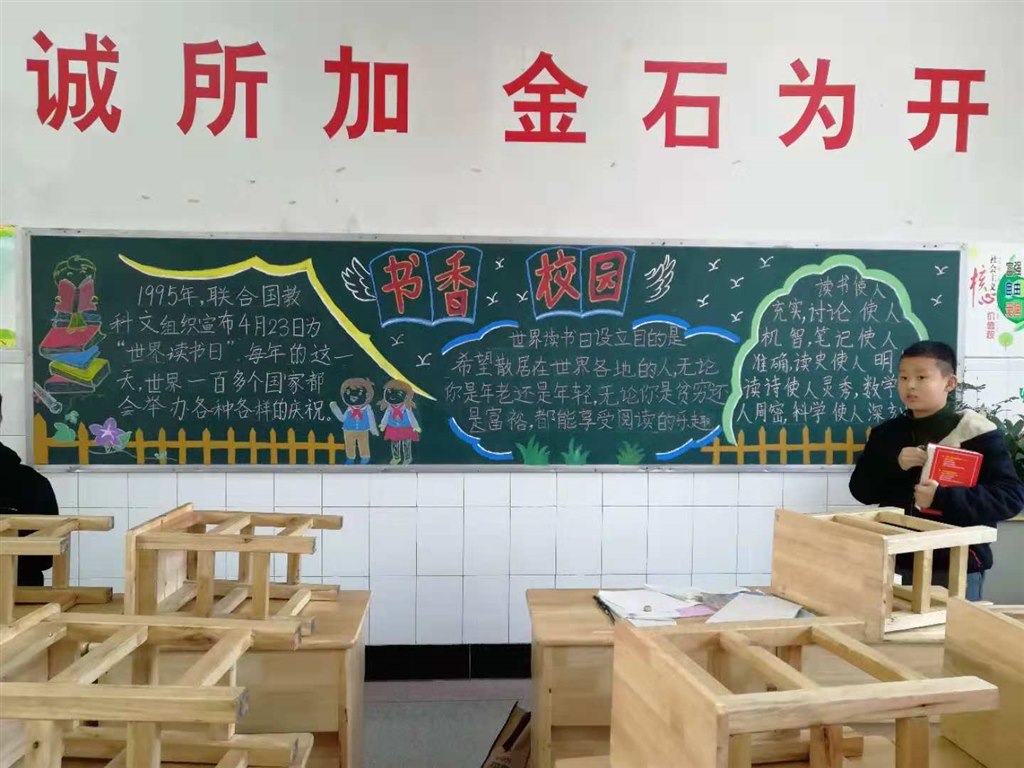 诚所加 金石为开
书香 校园
1995年,联合国教
科文组织宣布4月23日为
“世界读书日”.每年的这一
天,世界一百多个国家都
会举办各种各样的庆祝.
世界读书日设立目的是
希望散居在世界各地的人,无论
你是年老还是年轻,无论你是贫穷还
是富裕,都能享受阅读的乐趣
读书使人
充实,讨论使人
机智,笔记使人
准确,读史使人明
读诗使人灵秀,数学
人周密,科学使人深刻
社会主义
核心
价值观
富强
自由
爱国